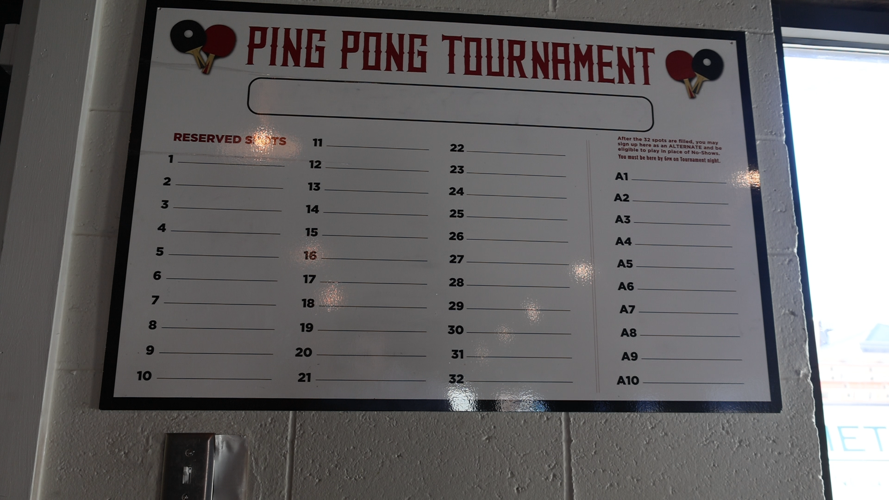 PING PONG TOURNAMENT
RESERVED SPOTS
1
2
3
4
5
6
7
8
9
10
11
12
13
14
15
16
17
18
19
20
21
22
23
24
25
26
27
28
29
30
31
32
After the 32 spots are filled, you may
sign up here as an ALTERNATE and be
eligible to play in place of No-Shows.
You must be here by 6PM on Tournament night.
A1
A2
A3
A4
A5
A6
A7
A8
A9
A10